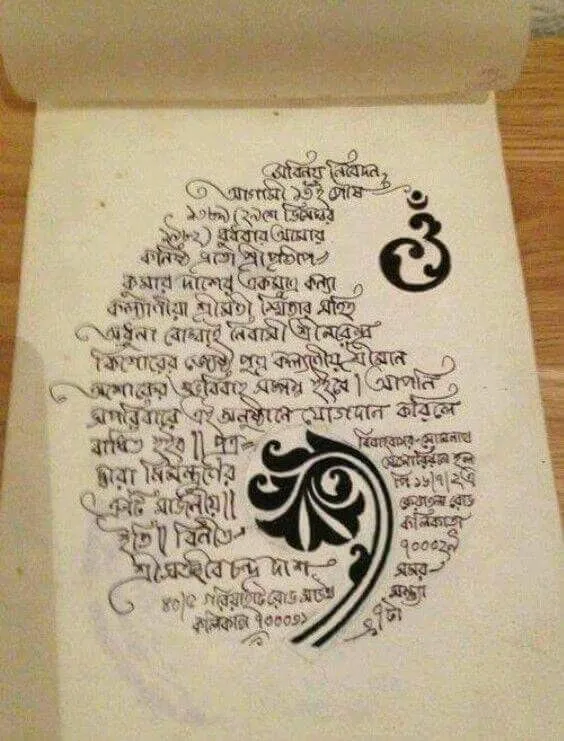 সবিনয় নিবেদন,
আগামী ১৩ই পৌষ
১৩৮৯ (২৯শে ডিসেম্বর
১৯৮২) বুধবার আমার
কনিষ্ঠ ভ্রাতা শ্রী
কুমার দাশের একমাত্র কন্যা
কল্যাণীয়া শ্রীমতী সহিত
অধুনা বোম্বাই নিবাসী শ্রী
কিশোরের জ্যেষ্ঠ পুত্র কল্যাণীয় শ্রীমান
অশোকের শুভবিবাহ সম্পন্ন হইবে। আপনি
সপরিবারে এই অনুষ্ঠানে যোগদান করিলে
বাধিত হইব॥ পত্র-
দ্বারা নিমন্ত্রণের
ত্রুটি মার্জনীয়॥
ইতি॥ বিনীত-
শ্রী চন্দ্র দাশ
৪০/৫ গরিয়াহাট রোড, সাউথ
কলিকাতা ৭০০০৩১
বিবাহবাসর-সোমনাথ
মেমোরিয়াল হল
রোড
কলিকাতা
৭০০০২৯
সময়-
সন্ধ্যা
৭টা
ওঁ